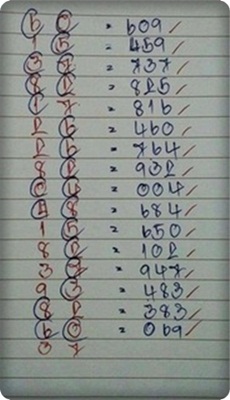 6 0 = 609 ✓
1 5 = 459 ✓
3 7 = 737 ✓
8 2 = 825 ✓
1 7 = 816 ✓
2 6 = 460 ✓
2 6 = 764 ✓
8 2 = 932 ✓
0 4 = 004 ✓
4 8 = 684 ✓
1 5 = 650 ✓
8 2 = 102 ✓
3 7 = 947 ✓
9 3 = 483 ✓
8 2 = 383 ✓
6 0 = 069 ✓
3 7